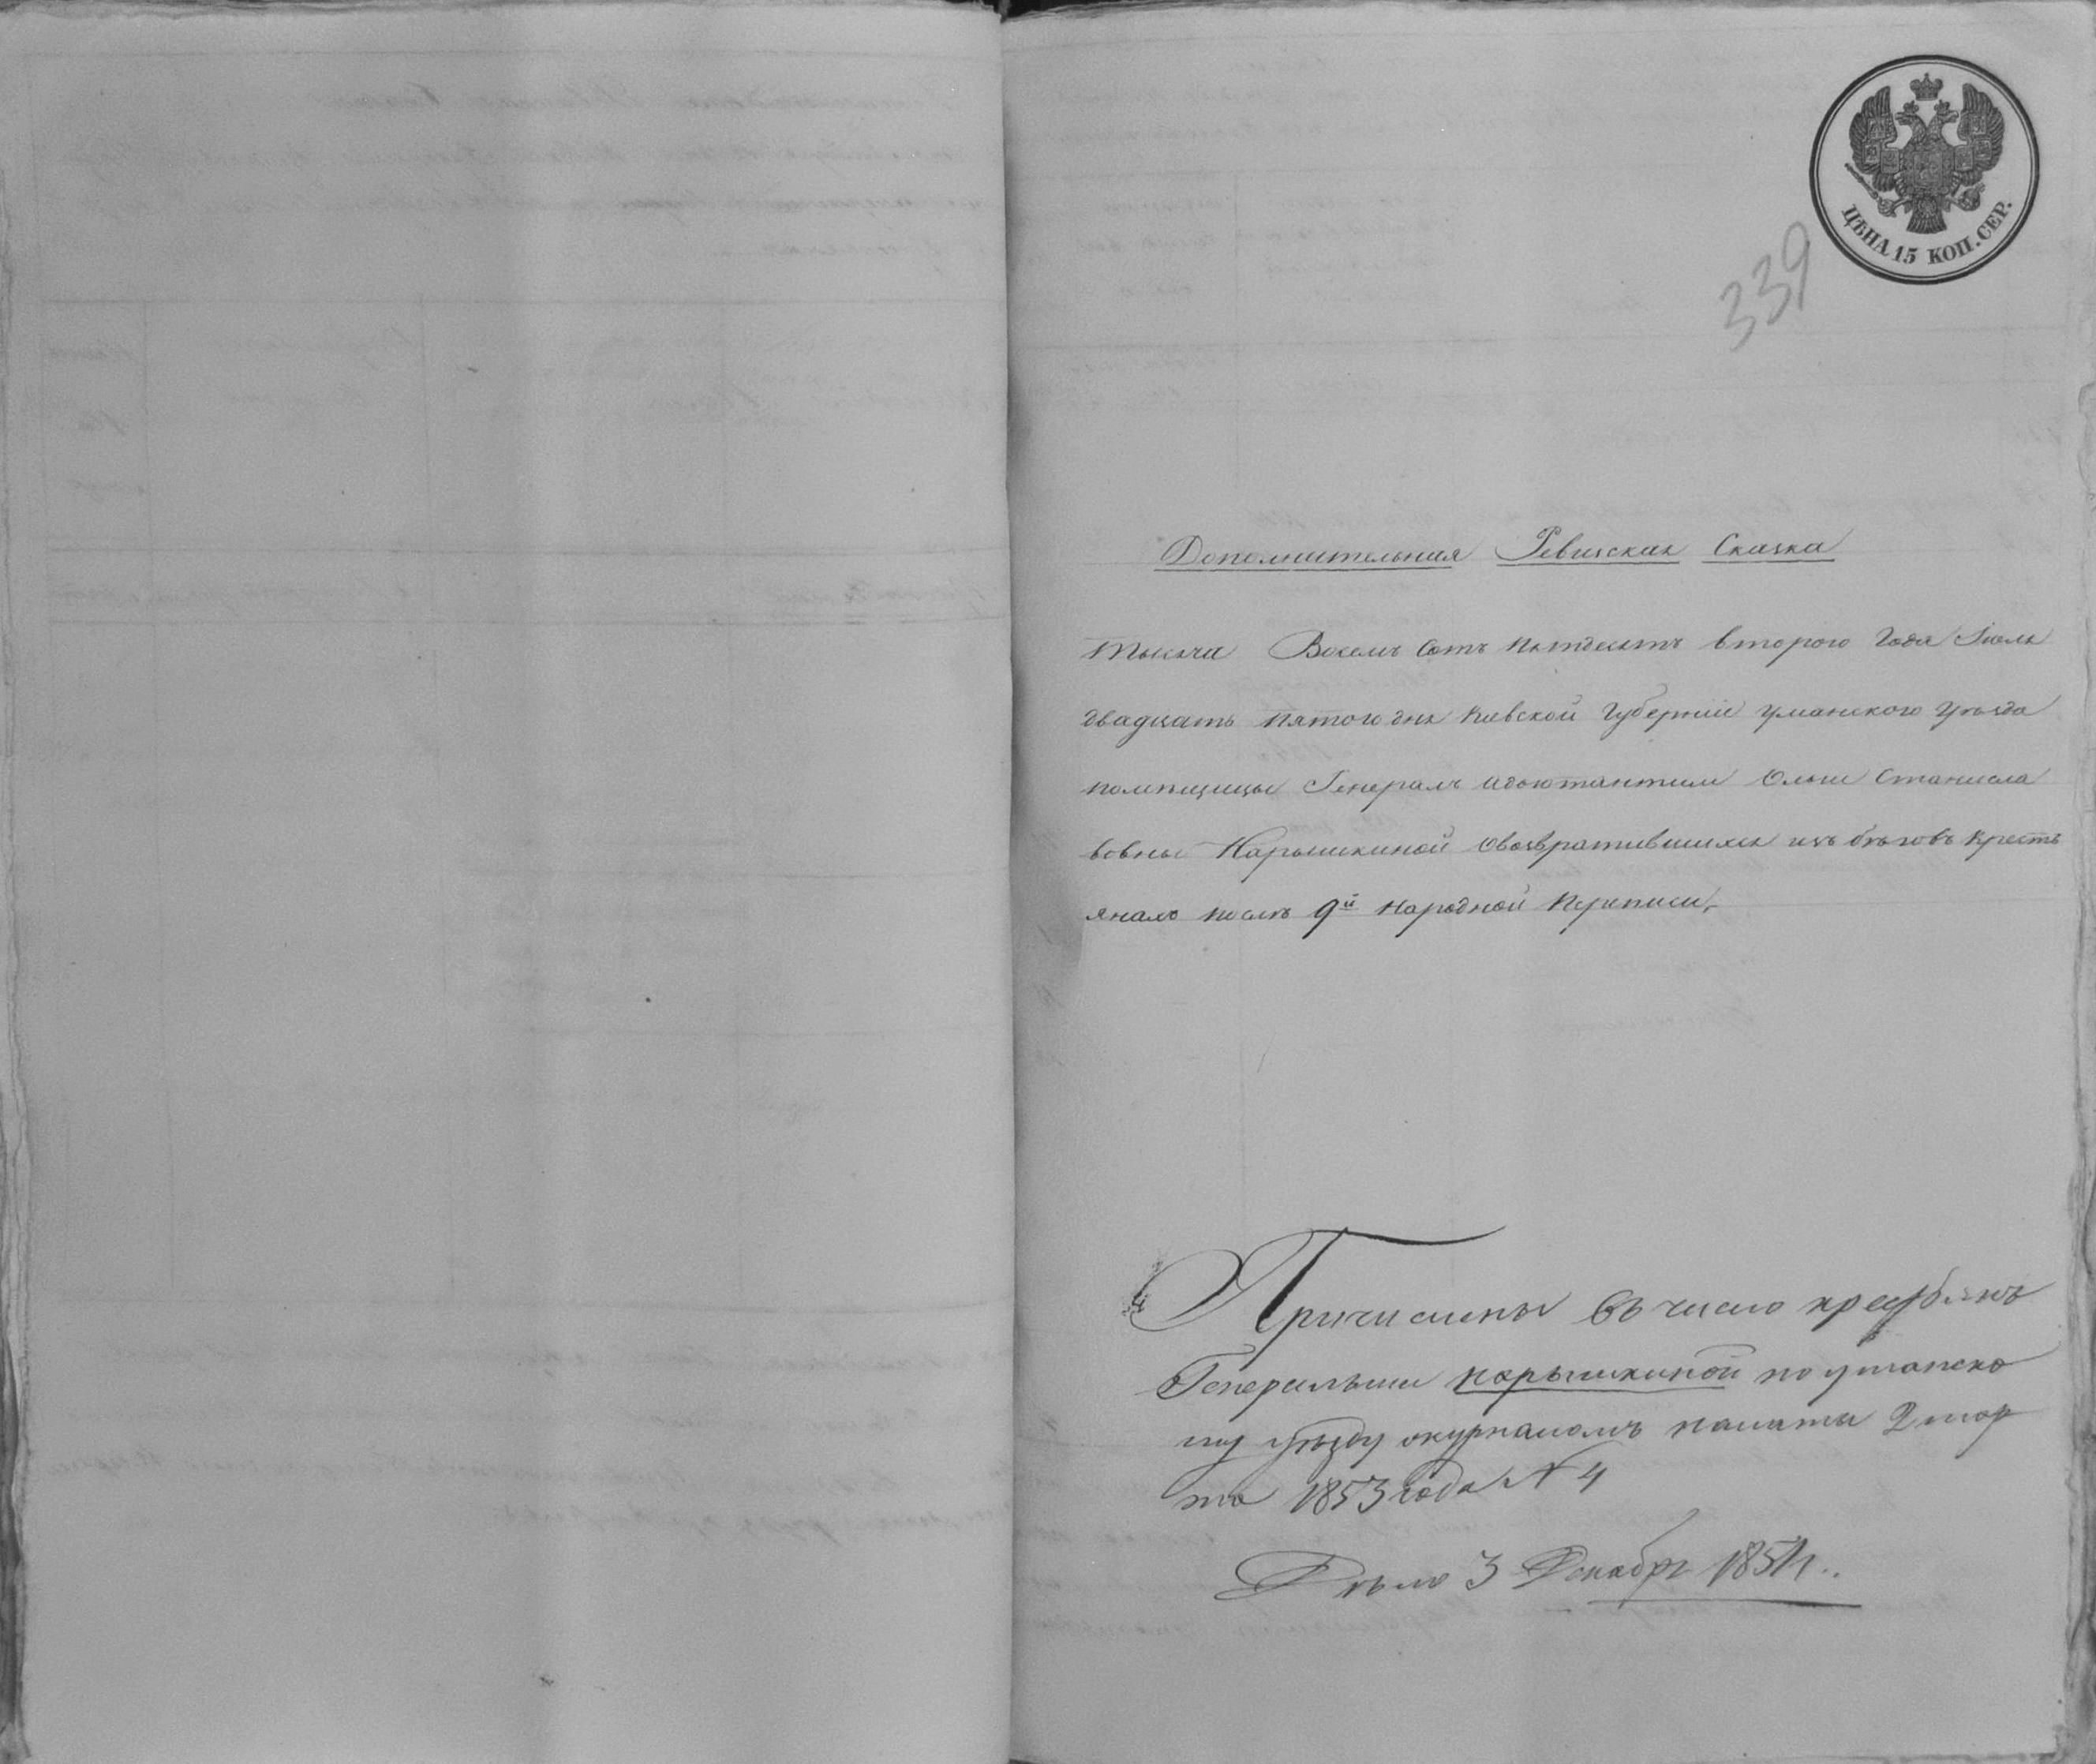 ЦѢНА 15 КОП. СЕР.
339
Дополнительная Ревизская Сказка
Тысяча Восемъ Сотъ пятдесятъ второго Года Іюля
двадцать пятого дня Кіевской Губерніи Уманского Уѣзда
помѣщицы Генералъ Адъютантши Ольги Станисла
вовны Нарышкиной овозвратившихся изъ бѣговъ Кресть
янахъ послѣ 9й Народной Переписи,
Причислены въ число крестьянъ
Генеральши Нарышкиной по уманско
му уѣзду журналомъ палаты 2 мар
та 1853 года N 4
Дѣло 3 Декабря